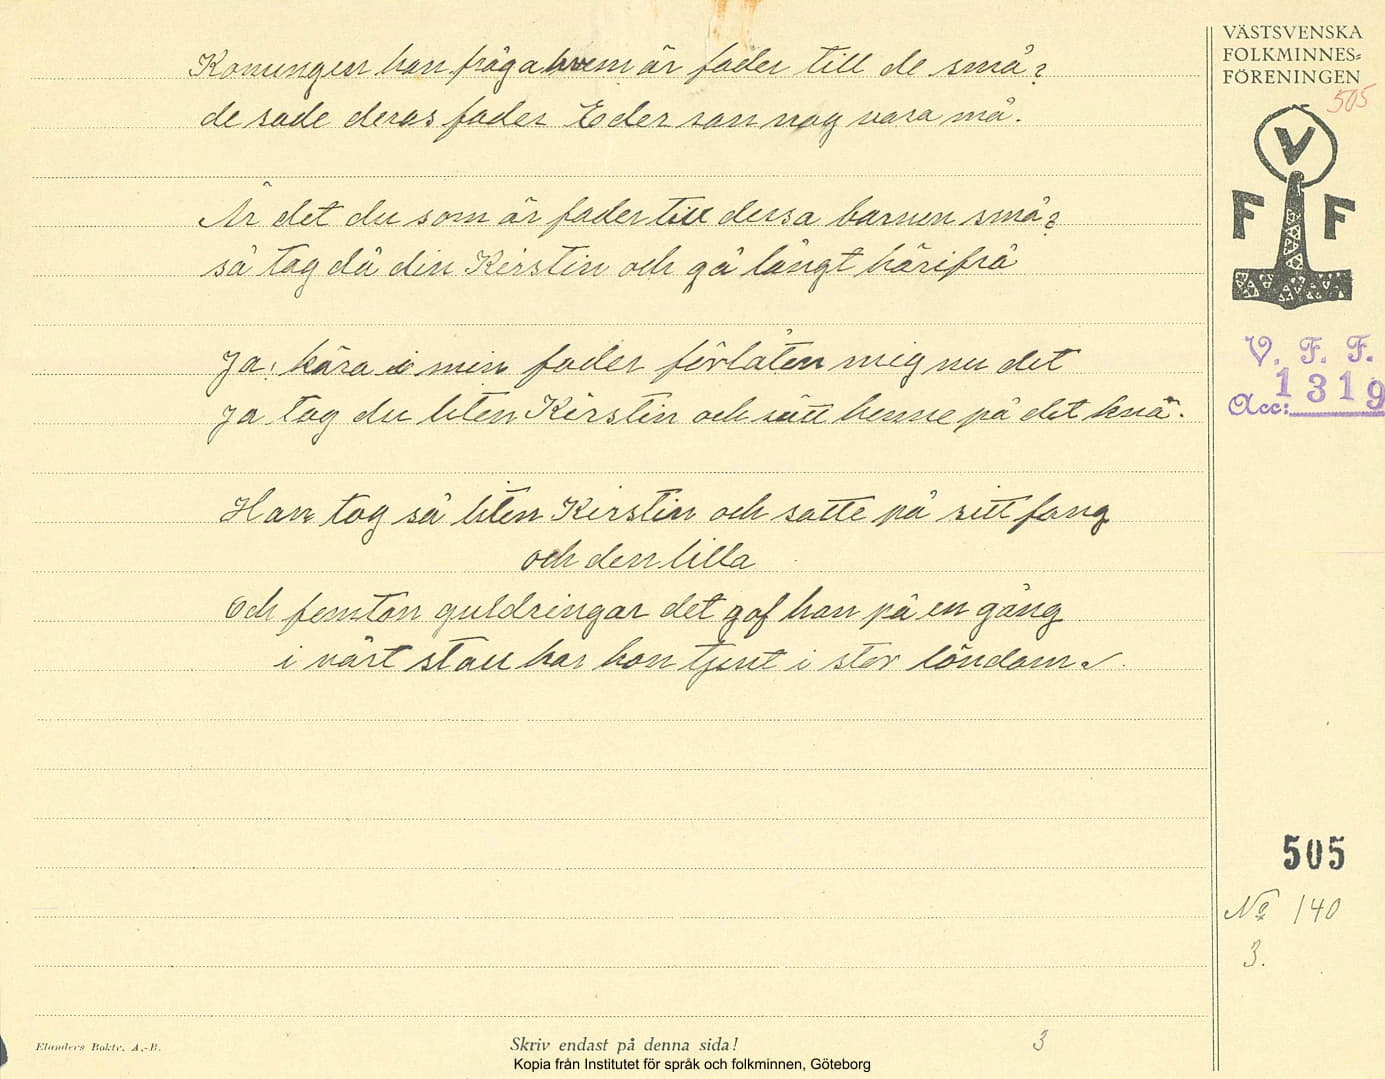 Konungen han fråga hvem är fader till de små?
de sade deras fader Eder son nog vara må.
Är det du som är fader till dessa barnen små?
så tag då din Kirstin och gå långt härifrå
Ja! kära min fader förlåten mig nu det
Ja tag du liten Kirstin och sätt henne på det knä.
Han tog så liten Kirstin och satte på sitt fang
och den lilla
Och femton guldringar det gaf han på en gång
i vårt stall har hon tjent i stor löndom.
VÄSTSVENSKA
FOLKMINNES-
FÖRENINGEN
505
V
F F
V. F. F.
Acc: 1319
505
No 140
3.
Elanders Boktr. A.-B.
Skriv endast på denna sida!
3
Kopia från Institutet för språk och folkminnen, Göteborg